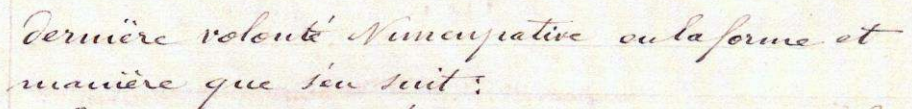 dernière volonté Nuncupative en la forme et
manière que s'en suit: